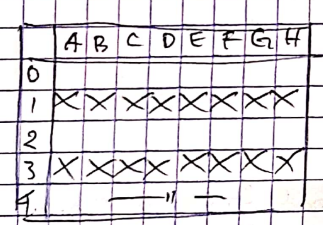 A B C D E F G H
0
1 X X X X X X X X
2
3 X X X X X X X X
4 — " —